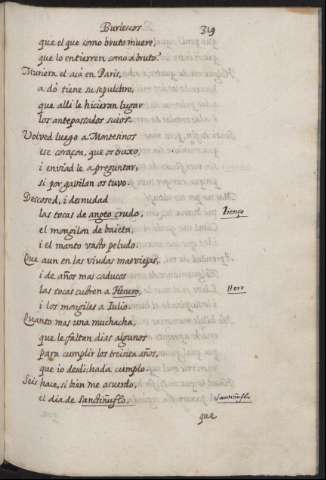 Burlescos
319
que el que como bruto muere,
que lo entierren como a bruto.
Muriera el acà en Paris,
a dò tiene su sepulchro,
que alli le hicieran lugar
los antepassados suios.
Volved luego a Montesinos
ese coraçon, que os truxo,
i enviad le a preguntar,
si por gavilan os tuvo.
Descosed, i desnudad
las tocas de angeo crudo, lienço
el mongilon de baieta,
i el manto vasto peludo.
Que aun en las viudas mas viejas,
i de años mas caducos
las tocas cubren a Henero, Hero
i los mongiles a Julio.
Quanto mas una muchacha,
que le faltan dias algunos
para cumplir los treinta años,
que io desdichada cumplo.
Seis hace, si bien me acuerdo,
el dia de Sanctiñuflo. Sanctiñuflo
que